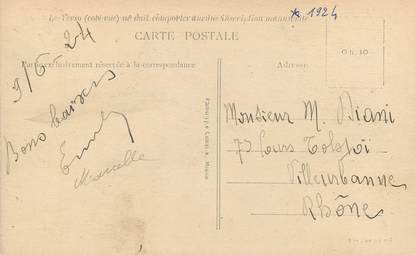 Le Verso (côté vue) ne doit comporter aucune inscription manuscrite
* 1924
CARTE POSTALE
Partie exclusivement réservée à la correspondance
Adresse
0 fr. 10
9/6-24
Bons baisers
Emily
Marcelle
Monsieur M. Diani
77 Cours Tolstoï
Villeurbanne
Rhône